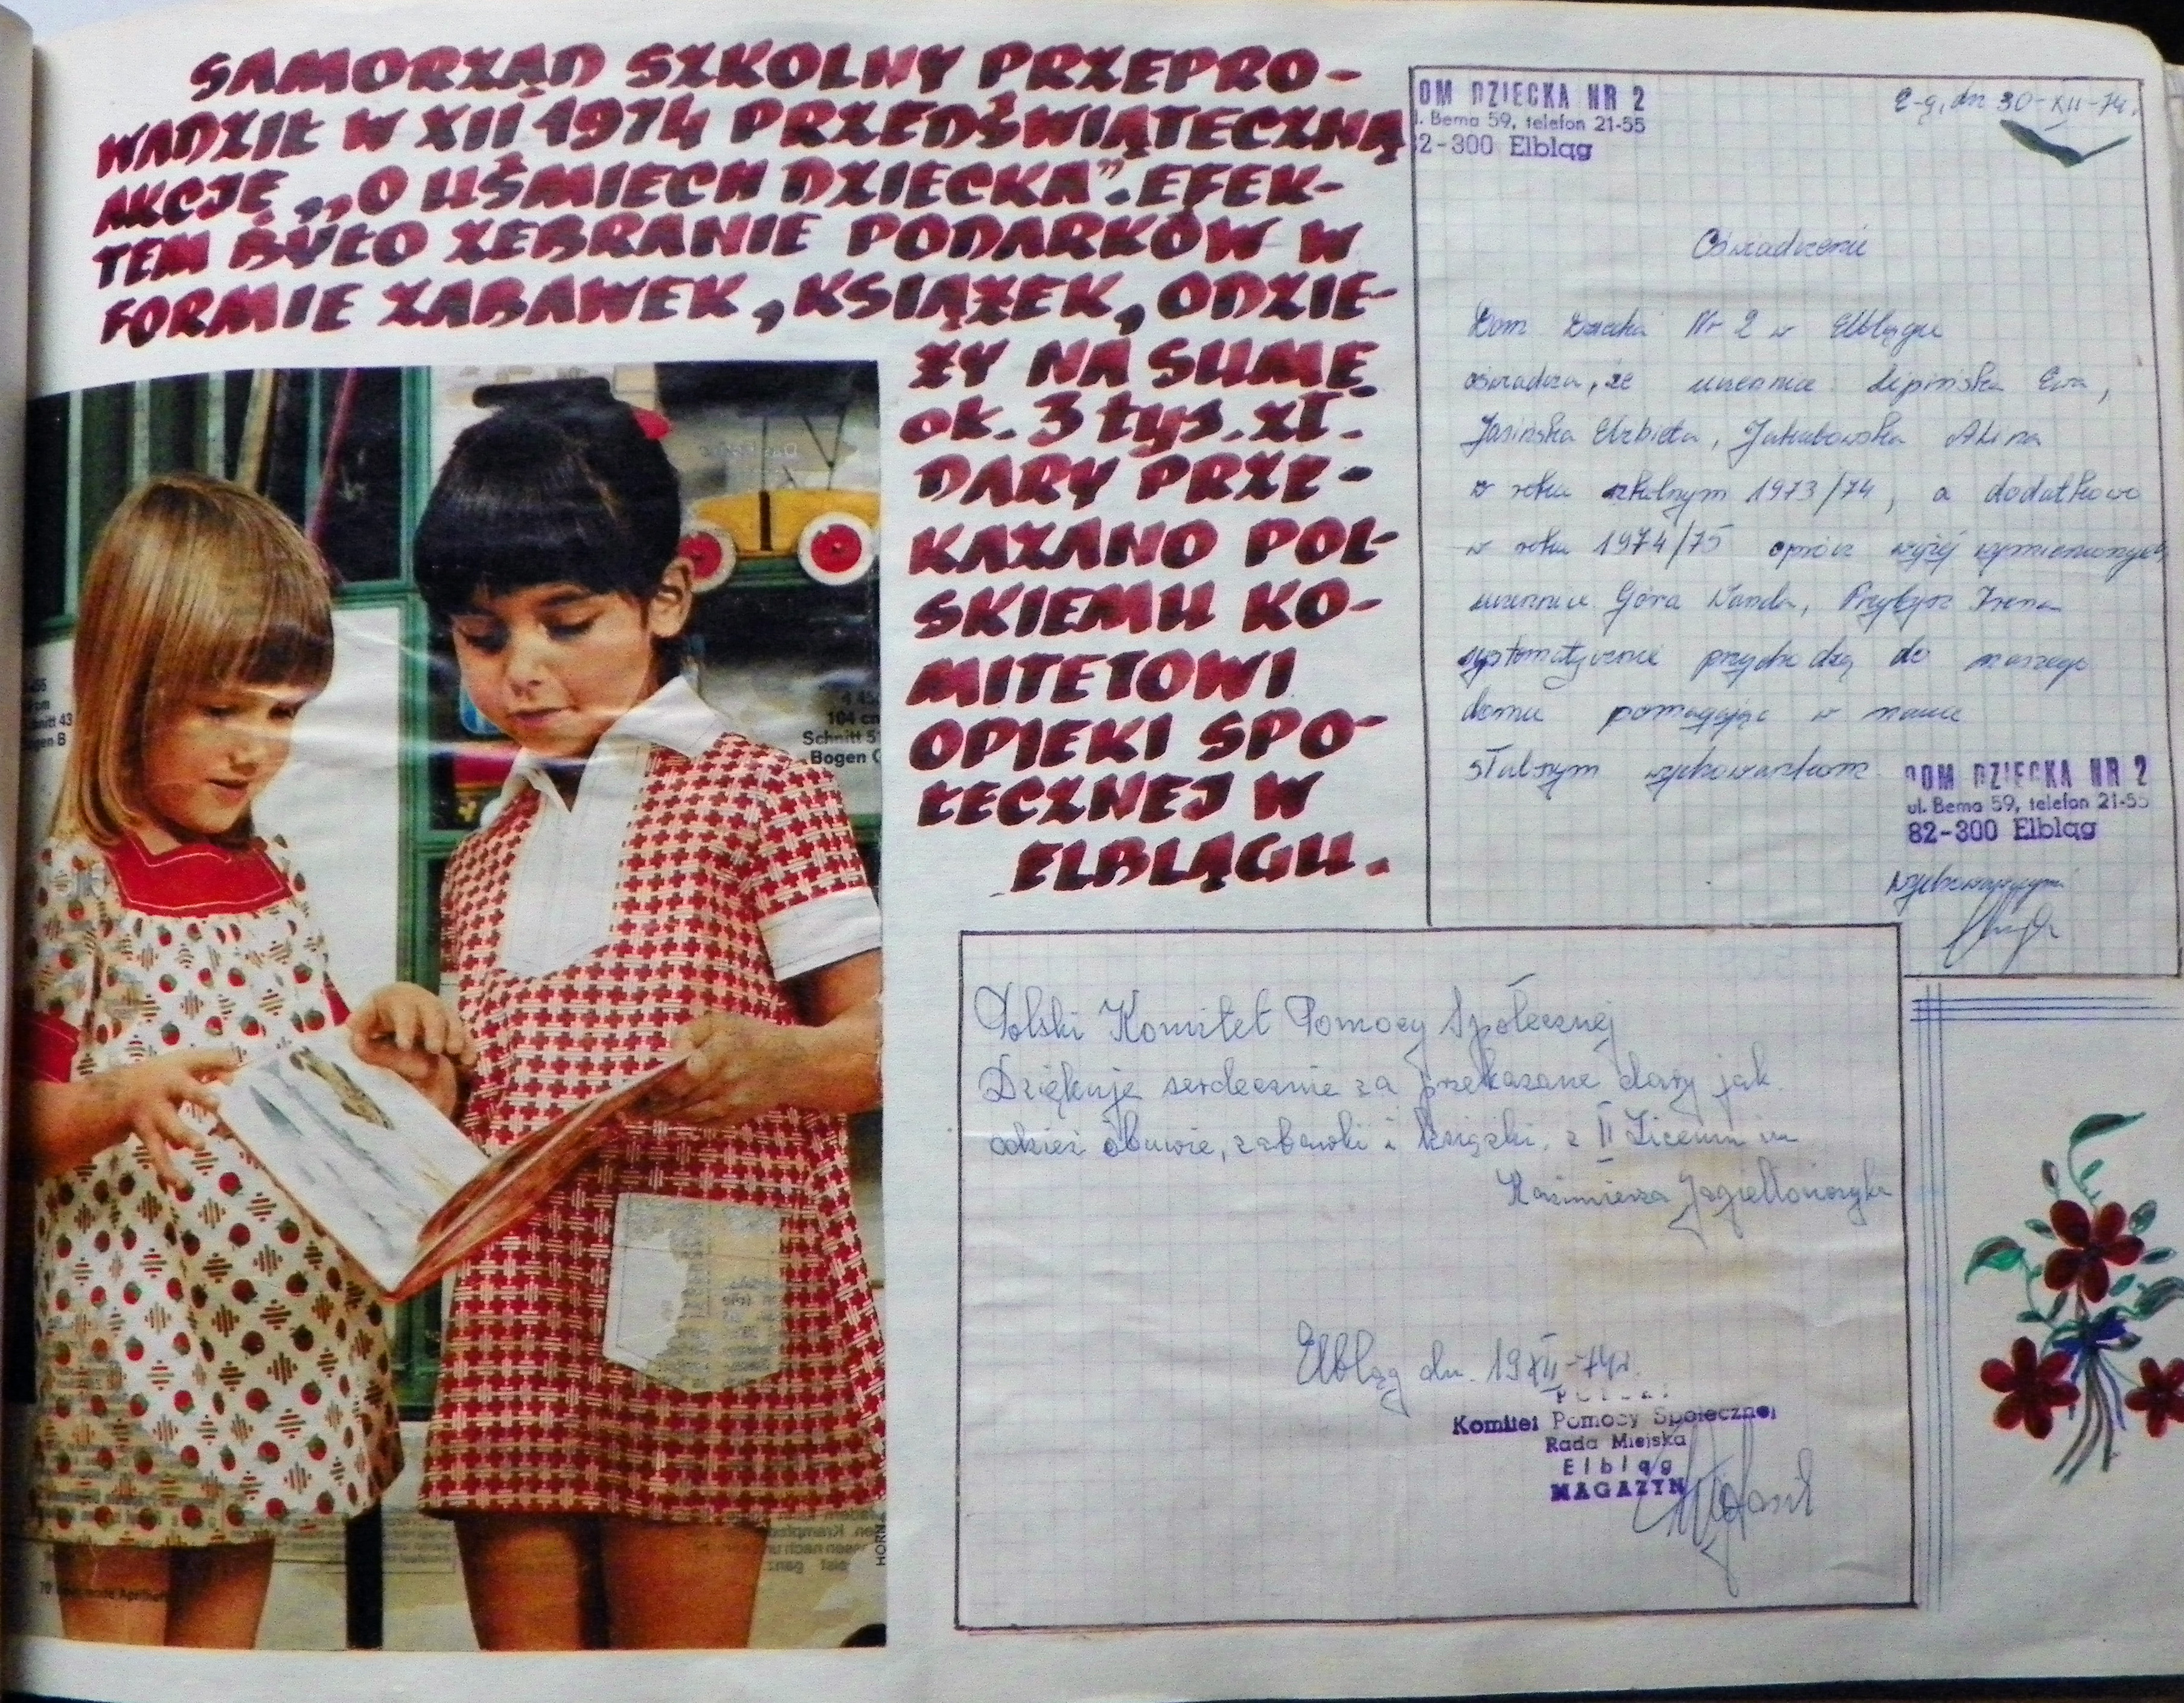 SAMORZĄD SZKOLNY PRZEPRO-
WADZIŁ W XII 1974 PRZEDŚWIĄTECZNĄ
AKCJĘ „O UŚMIECH DZIECKA”. EFEK-
TEM BYŁO ZEBRANIE PODARKÓW W
FORMIE ZABAWEK, KSIĄŻEK, ODZIE-
ŻY NA SUMĘ
ok. 3 tys. zł.
DARY PRZE-
KAZANO POL-
SKIEMU KO-
MITETOWI
OPIEKI SPO-
ŁECZNEJ W
ELBLĄGU.
4 45
104 cm
Schnitt 5
Bogen
HORN
OM DZIECKA NR 2
l. Bema 59, telefon 21-55
2-300 Elbląg
E-g, dn 30-XII-74.
Oświadczenie
Dom Dziecka Nr 2 w Elblągu
oświadcza, że uczennice: Lipińska Ewa,
Jasińska Elżbieta, Jakubowska Alina
w roku szkolnym 1973/74, a dodatkowo
w roku 1974/75 oprócz wyżej wymienionych
uczennice Góra Wanda, Irena
systematycznie przychodzą do naszego
domu pomagając w nauce
słabszym wychowankom
DOM DZIECKA NR 2
ul. Bema 59, telefon 21-55
82-300 Elbląg
Polski Komitet Pomocy Społecznej
Dziękuje serdecznie za przekazane dary jak
odzież obuwie, zabawki i książki. z II Liceum im
Kazimierza Jagiellończyka
Elbląg dn. 19 XII-74r.
Komitet Pomocy Społecznej
Rada Miejska
Elbląg
MAGAZYN